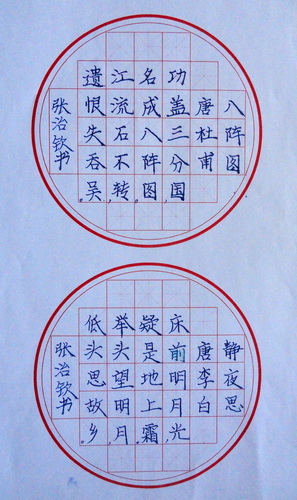 八阵图
唐杜甫
功盖三分国，
名成八阵图。
江流石不转，
遗恨失吞吴。
张治钦书
静夜思
唐李白
床前明月光，
疑是地上霜。
举头望明月，
低头思故乡。
张治钦书